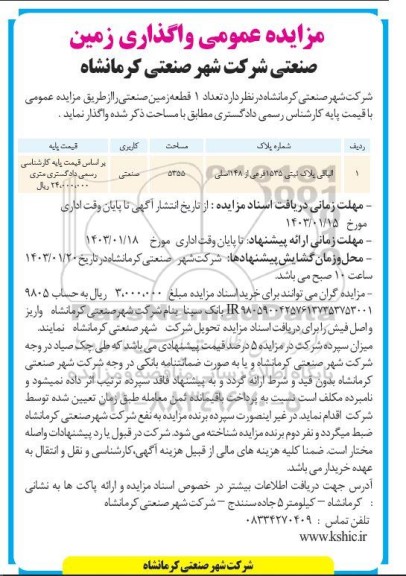 مزایده عمومی واگذاری زمین
صنعتی شرکت شهر صنعتی کرمانشاه
شرکت شهر صنعتی کرمانشاه در نظر دارد تعداد ۱ قطعه زمین صنعتی را از طریق مزایده عمومی
با قیمت پایه کارشناس رسمی دادگستری مطابق با مساحت ذکر شده واگذار نماید .
ردیف شماره پلاک مساحت کاربری قیمت پایه
۱ الباقی پلاک ثبتی ۱۵۳۵ فرعی از ۱۴۸ اصلی ۵۳۵۵ صنعتی بر اساس قیمت پایه کارشناسی
رسمی دادگستری متری
۲۴,۰۰۰,۰۰۰ ریال
- مهلت زمانی دریافت اسناد مزایده : از تاریخ انتشار آگهی تا پایان وقت اداری
مورخ ۱۴۰۳/۰۱/۱۵
- مهلت زمانی ارائه پیشنهاد: تا پایان وقت اداری مورخ ۱۴۰۳/۰۱/۱۸
- محل وزمان گشایش پیشنهادها: شرکت شهر صنعتی کرمانشاه در تاریخ ۱۴۰۳/۰۱/۲۰
ساعت ۱۰ صبح می باشد.
- مزایده گران می توانند برای خرید اسناد مزایده مبلغ ۳,۰۰۰,۰۰۰ ریال به حساب ۹۸۰۵
بانک سینا بنام شرکت شهر صنعتی کرمانشاه واریز
و اصل فیش را برای دریافت اسناد مزایده تحویل شرکت شهر صنعتی کرمانشاه نمایند.
میزان سپرده شرکت در مزایده ۵ درصد قیمت پیشنهادی می باشد که طی چک صیاد در وجه
شرکت شهر صنعتی کرمانشاه و یا به صورت ضمانتنامه بانکی در وجه شرکت شهر صنعتی
کرمانشاه بدون قید و شرط ارائه گردد و به پیشنهاد فاقد سپرده ترتیب اثر داده نمیشود و
نامبرده مکلف است نسبت به پرداخت باقیمانده ثمن معامله طبق زمان تعیین شده توسط
شرکت اقدام نماید. در غیر اینصورت سپرده برنده مزایده به نفع شرکت شهر صنعتی کرمانشاه
ضبط میگردد و نفر دوم برنده مزایده شناخته می شود. شرکت در قبول یا رد پیشنهادات واصله
مختار است. ضمنا کلیه هزینه های مالی از قبیل هزینه آگهی،کارشناسی و نقل و انتقال به
عهده خریدار می باشد.
آدرس جهت دریافت اطلاعات بیشتر در خصوص اسناد مزایده و ارائه پاکت ها به نشانی
: کرمانشاه – کیلومتر ۵ جاده سنندج – شرکت شهر صنعتی کرمانشاه
تلفن تماس : ۰۸۳۳۴۲۷۰۴۰۹
www.kshic.ir
شرکت شهر صنعتی کرمانشاه